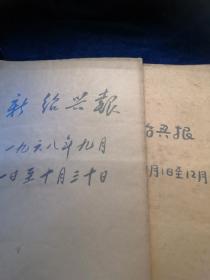 新绍兴報
一九六八年九月
一日至十月三十日
兴报
月1日至12月